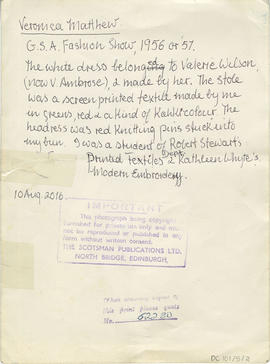 Veronica Matthew.
G.S.A. Fashion Show, 1956 or '57.
The white dress belonged to Valerie Wilson,
(now V. Ambrose), & made by her. The stole
was a screen printed textile made by me
in greens, red & a kind of Kahki colour. The
headress was red knitting pins stuck into
my bun. I was a student of Robert Stewart's
Printed textiles Dept. & Kathleen Whyte's
Modern Embroidery.
10 Aug. 2016.
IMPORTANT
This photograph being copyright
furnished for private use only and must
not be reproduced or published in any
form without written consent.
THE SCOTSMAN PUBLICATIONS LTD.
NORTH BRIDGE, EDINBURGH,
When ordering copies of
this print please quote
No.
DC 101/5/2